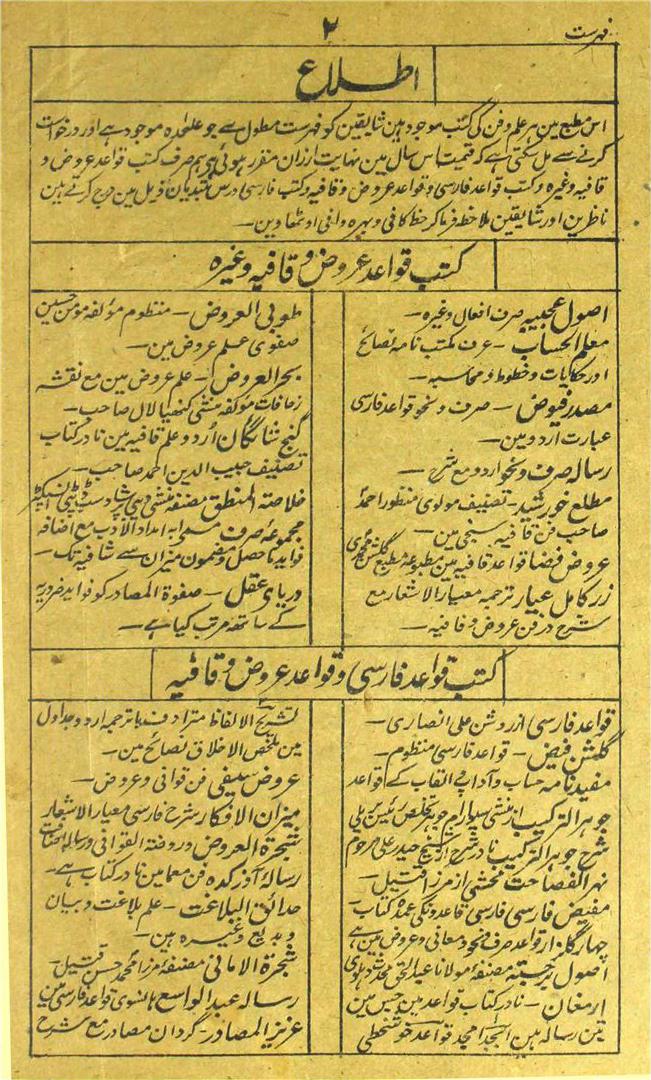 ۲
فہرست
اطلاع
اس مطبع مین ہر علم و فن کی کتب موجود ہین شایقین کو فہرست مطول سے جو علیٰحدہ موجود ہے اور درخواست
کرنے سے مل سکتی ہے کہ قیمت اس سال مین نہایت ارزان مقرر ہوئی ہی ہم صرف کتب قواعد عروض و
قافیہ وغیرہ و کتب قواعد فارسی و قواعد عروض و قافیہ و کتب فارسی درس مبتدیان ذیل مین درج کرتے ہین
ناظرین اور شایقین ملاحظہ فرما کر حظ کافی و بہرہ وافی اوٹھاوین۔
کتب قواعد عروض و قافیہ وغیرہ
اصول عجیبہ صرف افعال وغیرہ۔
معلم الحساب۔ عرف مکتب نامہ نصائح
اور حکایات و خطوط و محاسبہ۔
مصدر فیوض۔ صرف و نحو قواعد فارسی
عبارت اردو مین۔
رسالہ صرف و نحو اردو مع شرح۔
مطلع خورشید۔ تصنیف مولوی منظور احمد
صاحب فن قافیہ سنجی مین۔
عروض فضا قواعد قافیہ مین مطبوعہ مطبع گلشن محمدی
زر کامل عیار ترجمہ معیار الاشعار مع
شرح در فن عروض و قافیہ۔
طوبی العروض۔ منظوم مؤلفہ مومن حسین
صفوی علم عروض مین۔
بحر العروض۔ علم عروض مین مع نقشہ
زحافات مؤلفہ منشی کنھیا لال صاحب۔
گنج شائگان اردو علم قافیہ مین نادر کتاب
تصنیف حبیب الدین احمد صاحب۔
خلاصۃ المنطق مصنفہ منشی دیبی پرشاد سب ڈپٹی انسپکٹر
مجموعۂ صرف مسمے بہ امداد الادب مع اضافہ
فواید ماحصل و مضمون میزان سے شافیہ تک۔
دریای عقل۔ صفوۃ المصادر کو فواید ضروریہ
کے ساتھ مرتب کیا ہے۔
کتب قواعد فارسی و قواعد عروض و قافیہ
قواعد فارسی از روشن علی انصاری۔
گلشن فیض۔ قواعد فارسی منظوم۔
مفید نامہ حساب و آداب و القاب کے قواعد
جوہر الترکیب از منشی سیوارام جوہر تخلص رئیس بریلی
شرح جوہر الترکیب نادر شرح از شیخ حیدر علی مرحوم
نہر الفصاحت محشی از مرزا قتیل۔
مفیض فارسی فارسی قاعدونکی عمدہ کتاب۔
چہار گلزار قواعد صرف و نحو و معانی و عروض مین ہے
اصول برجستہ مصنفہ مولانا عبد الحق
ارمغان۔ نادر کتاب قواعد مین جس مین
تین رسالہ ہین ابجد امجد قواعد خوشخطی
تشریح الالفاظ مترادف با ترجمہ اردو و جداول
مین ملخص الاخلاق نصائح مین۔
عروض سیفی فن قوافی و عروض۔
میزان الافکار شرح فارسی معیار الاشعار
شجرۃ العروض و روضۃ القوافی و رسالہ اضافات
رسالہ آذر کدہ فن معما مین نادر کتاب ہے۔
حدائق البلاغت۔ علم بلاغت و بیان
و بدیع وغیرہ ہین۔
شجرۃ الامانی مصنفہ مرزا محمد حسن قتیل۔
رسالہ عبد الواسع ہانسوی قواعد فارسی مین
عزیز المصادر۔ گردان مصادر مع شرح